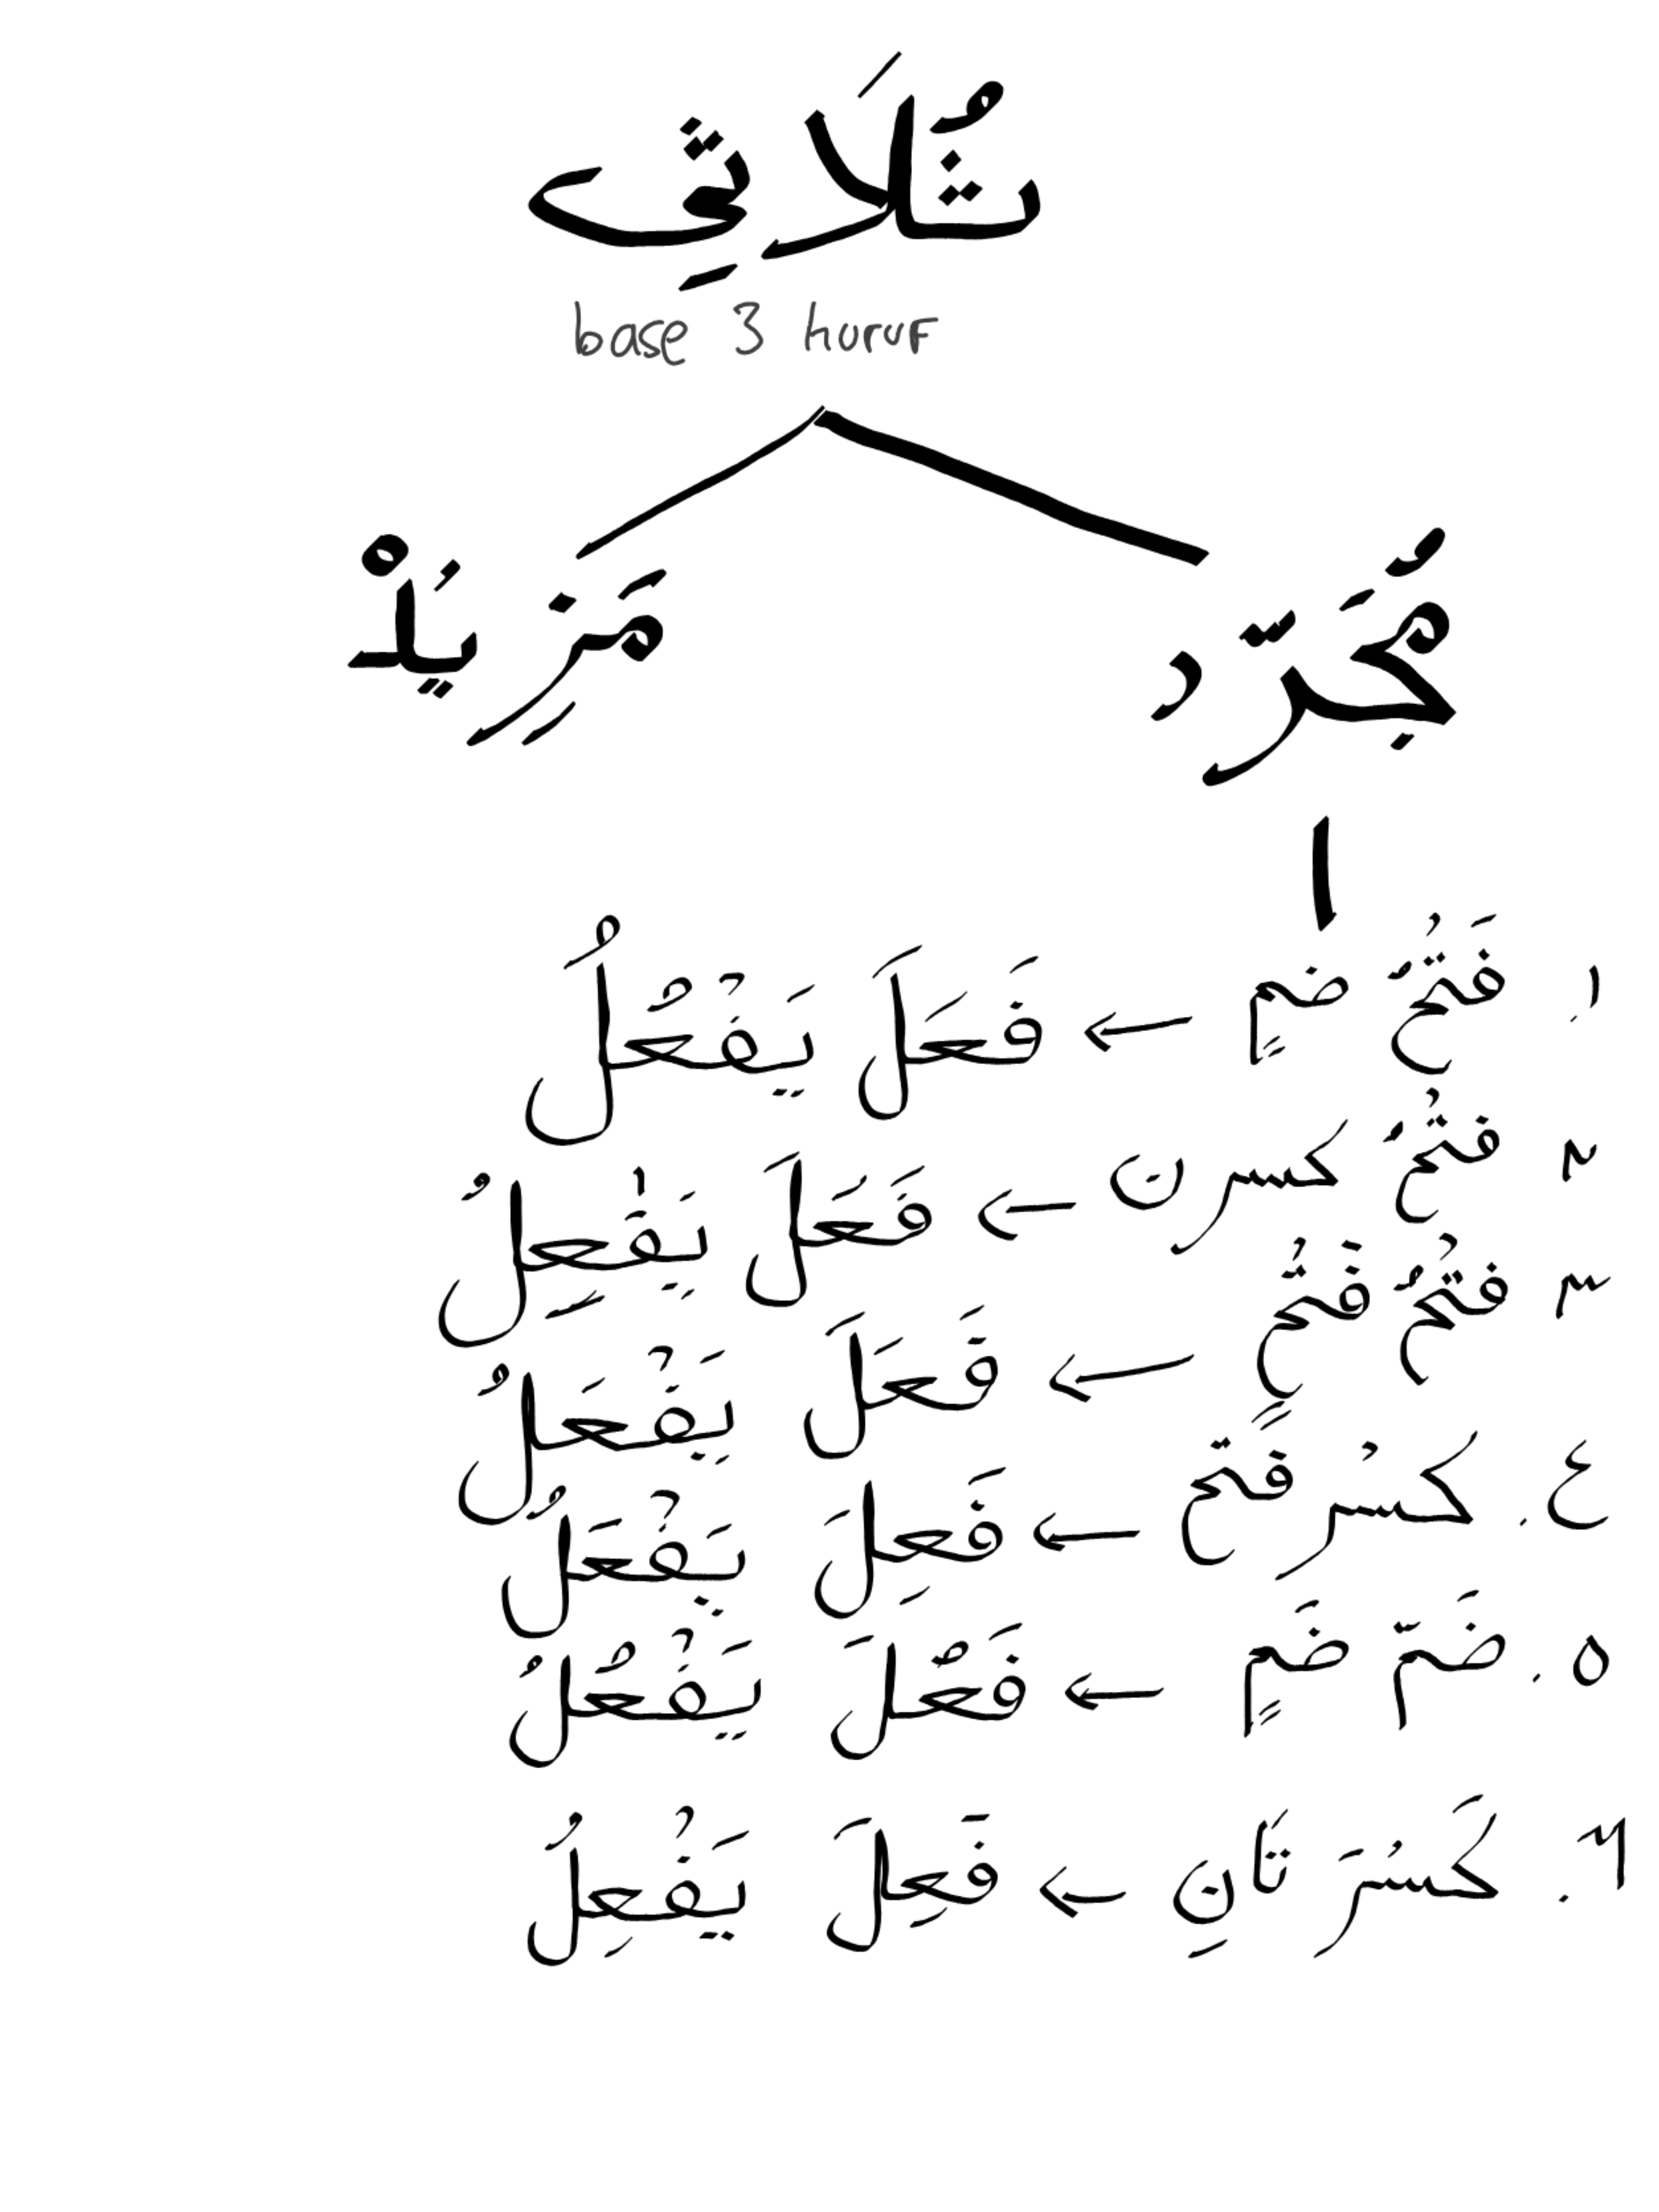 ثُلَاثِي
base 3 huruf
مُجَرّد مَزِيْدْ
١. فَتْحُ ضَمٍ ← فَعَلَ يَفْعُلُ
٢ فتْحُ كسرن ← فَعَلَ يَفْعِلُ
٣ فتْحُ فَتْحٍ ← فَعَلَ يَفْعَلُ
٤. كسْر فَتح ← فَعِلَ يَفْعَلُ
٥. ضَمّ ضَمٍ ← فَعُلَ يَفْعُلُ
٦. كَسْرَ تَانِ ← فَعِلَ يَفْعِلُ